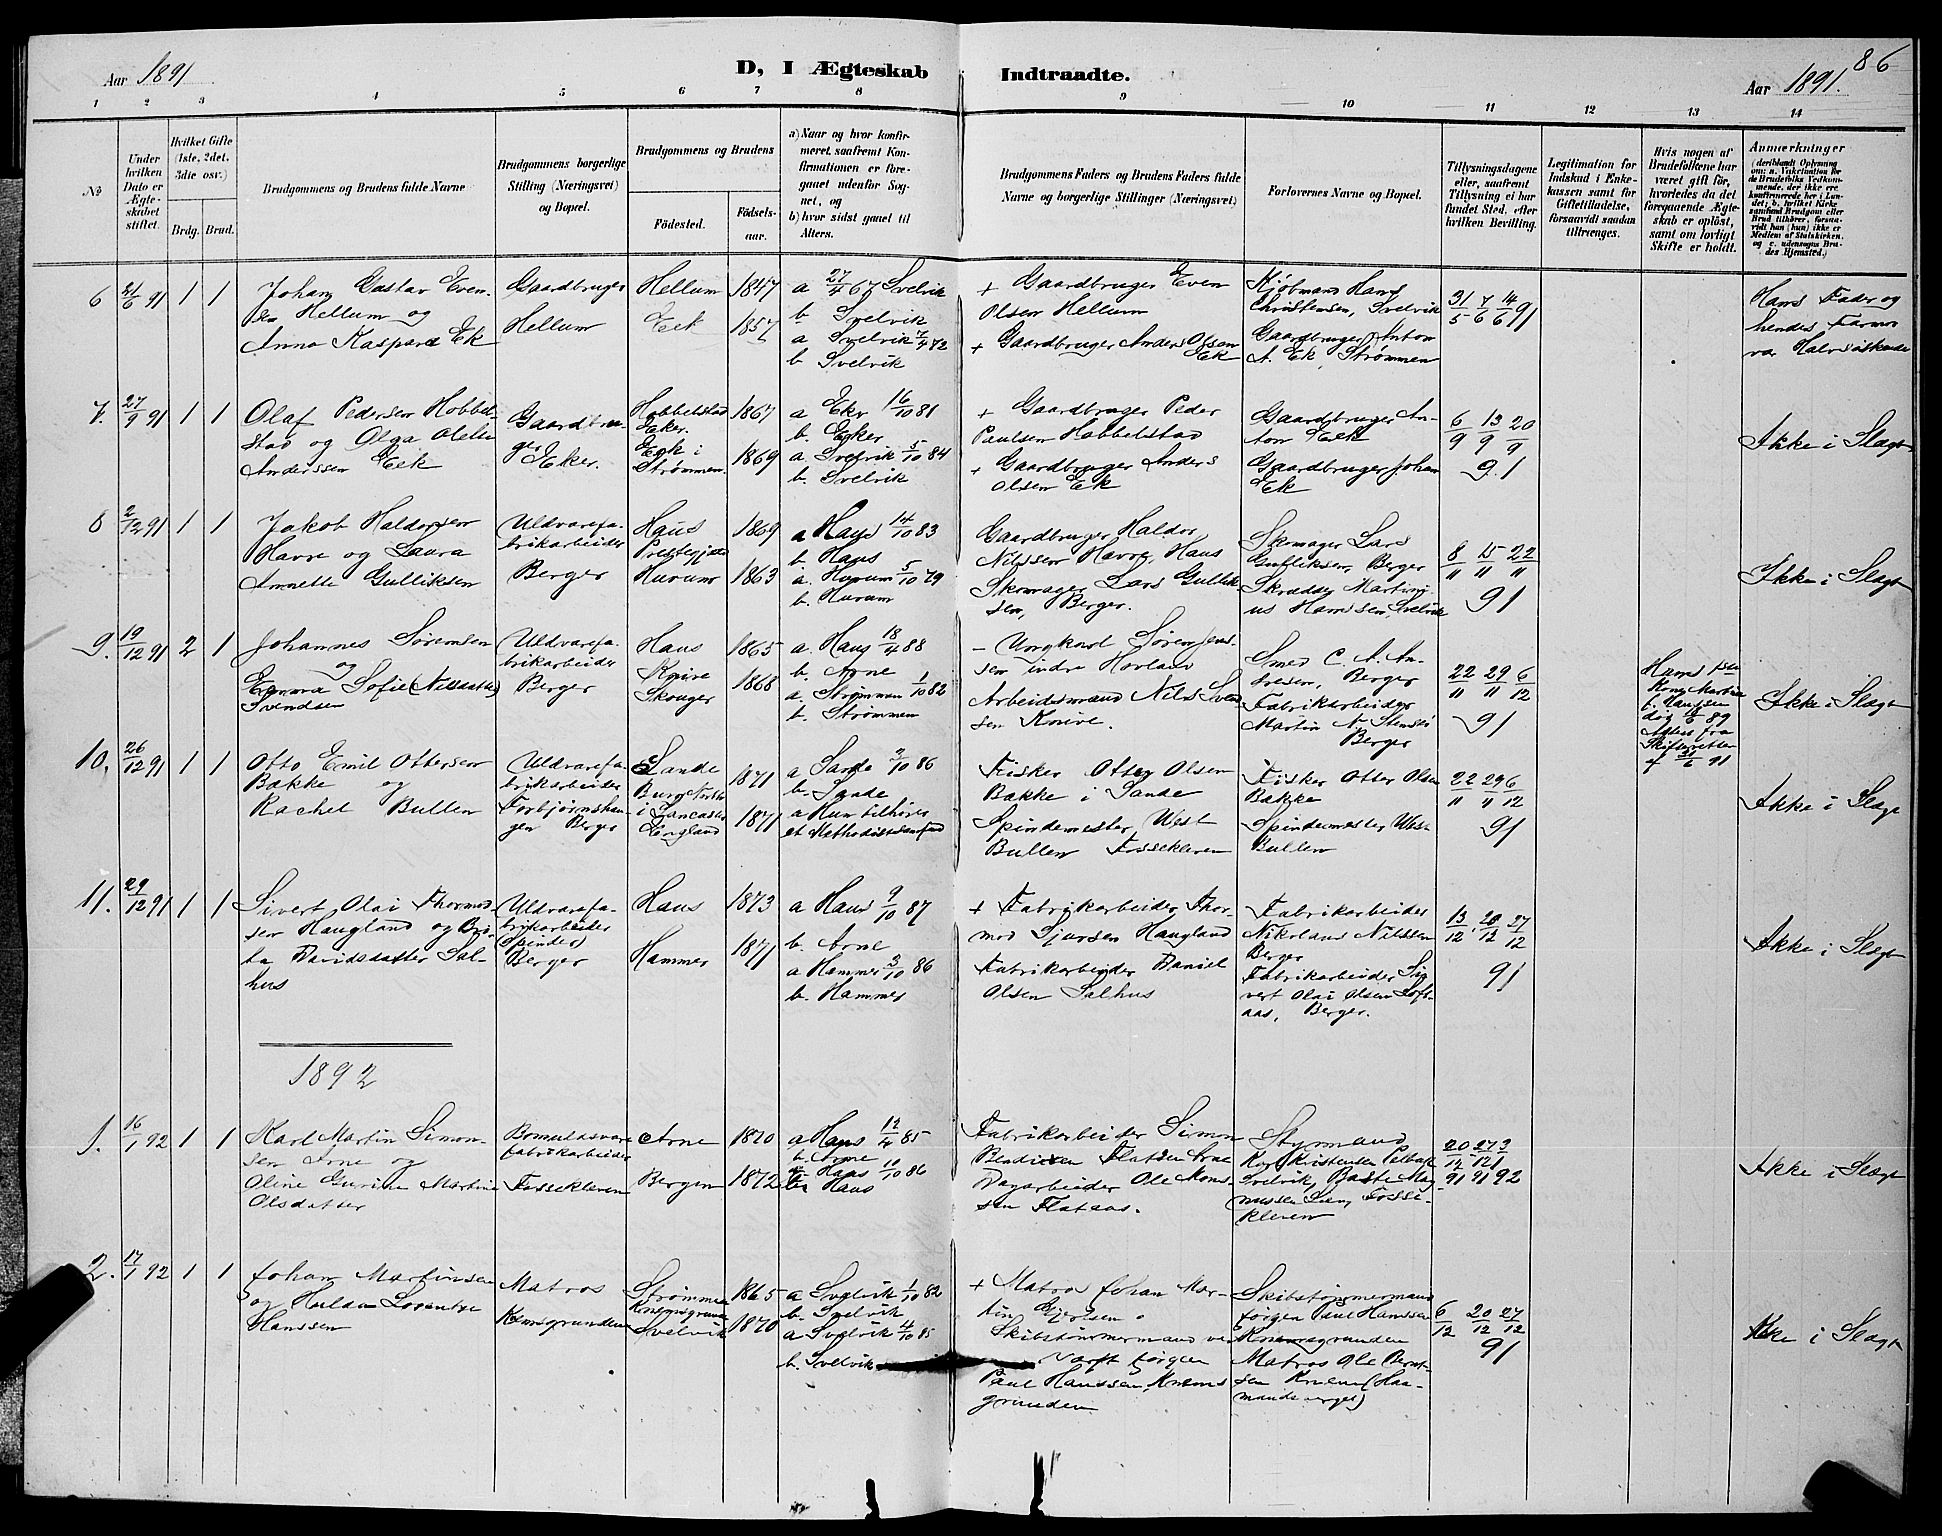 Aar 1891
D, I Ægteskab Indtraadte.
Aar 1891.
86
1 2 3 4 5 6 7 8 9 10 11 12 13 14
No
Under hvilken Dato er Ægteskabet stiftet.
Hvilket Gifte (1ste, 2det, 3die osv.)
Brdg. Brud.
Brudgommens og Brudens fulde Navne
Brudgommens borgerlige Stilling (Næringsvei) og Bopæl.
Brudgommens og Brudens
Fødested. Fødselsaar.
a) Naar og hvor konfirmeret, saafremt Konfirmationen er foregaaet udenfor Sognet, og
b) hvor sidst gaaet til Alters.
Brudgommens Faders og Brudens Faders fulde Navne og borgerlige Stillinger (Næringsvei)
Forlovernes Navne og Bopæl.
Tillysningsdagene eller, saafremt Tillysning ei har fundet Sted, efter hvilken Bevilling.
Legitimation for Indskud i Enkekassen samt for Giftetilladelse, forsaavidt saadan tiltrænges.
Hvis nogen af Brudefolkene har været gift før, hvorledes da det foregaaende Ægteskab er opløst, samt om lovligt Skifte er holdt.
Anmærkninger
6 21/6 91 1 1
Johan Gustav Even-
sen Hellum og
Anna Kaspara Ek
Gaardbruger
Hellum
Hellum 1847
Eek 1857
a 27/4 67 Svelvik
b Svelvik
a Svelvik 7/4 72
b Svelvik
+ Gaardbruger Even
Olsen Hellum
+ Gaardbruger Anders Olsen
Ek
Kjøbmand Hans
Christensen, Svelvik
Gaardbruger Anton
A. Ek, Strømmen
31/5 7/6 14/6 91
Hans Fader og
hendes Farmor
var Halvsøskende
7. 27/9 91 1 1
Olaf Pedersen Hobbel-
stad og Olga Otelie
Anderssen Eek
Gaardbru-
ger
Eker.
Hobbelstad
Eker. 1867
Eek i
Strømmen 1869
a Eker 16/10 81
b. Eker
a Svelvik 5/10 84
b. Svelvik
+ Gaardbruger Peder
Paulsen Hobbelstad
+ Gaardbruger Anders
Olsen Ek
Gaardbruger An-
ton Eek
Gaardbruger Johan
Ek
6/9 13/9 20/9
91
Ikke i Slægt
8 2/12 91 1 1
Jakob Haldorsen
Havre og Laura
Annette Gulliksen
Uldvarefa-
brikarbeider
Berger
Haus
Prestegjeld 1869
Hurum 1863
a Haus 14/10 83
b. Haus
a. Hurum 5/10 79
b. Hurum
Gaardbruger Haldor
Nilssen Havre, Haus
Skomager Lars Gullik-
sen, Berger.
Skomager Lars
Gulliksen, Berger
Skrædder Martini-
us Hanssen, Svelvik
8/11 15/11 22/11
91
Ikke i Slægt
9. 19/12 91 2 1
Johannes Sørensen
og
Emma Sofie (Nilsdatter)
Svendsen
Uldvarefa-
brikarbeider
Berger
Haus 1865
Knive
Skouger 1868
a. Haus 18/4 88
b. Arne
a. Strømmen 1/10 82
b. Strømmen
- Ungkarl Søren Jens-
sen indre Hovland
Arbeidsmand Nils Svend-
sen Knive.
Smed C. A. An-
dresen, Berger
Fabrikarbeider
Martin N.
Berger
22/11 29/11 6/12
91
Hans 1ste
Kone
f. Hansen
død 89
Attest fra
Skifteretten
af 91
Ikke i Slægt
10. 26/12 91 1 1
Otto Emil Ottersen
Bakke og
Rachel Bullen
Uldvarefa-
brikarbeider
Torbjørnshau-
gen Berger
Sande 1871
Burg
i Lancaster
England 1871
a Sande 2/10 86
b. Sande
a Hun tilhører
et Methodistsamfund
Fisker Otter Olsen
Bakke i Sande
Spindemester West
Bullen Fossekleven
Fisker Otter Olsen
Bakke
Spindemester West
Bullen
22/11 29/11 6/12
91
Ikke i Slægt
11. 29/12 91 1 1
Sivert Olai Thormod-
sen Haugland og Bri-
ta Davidsdatter Sal-
hus
Uldvarefa-
brikarbeider
(Spinder)
Berger
Haus 1873
Hammer 1871
a Haus 9/10 87
b. Arne
a Hammer 3/10 86
b. Hammer
+ Fabrikarbeider Thor-
mod Sjursen Haugland
Fabrikarbeider Daniel
Olsen Salhus
Fabrikarbeider
Nikolaus Nilssen
Berger
Fabrikarbeider Si-
vert Olai Olsen Lofs-
aas, Berger.
13/12 20/12 27/12
91
Ikke i Slægt
1892
1. 16/1 92 1 1
Karl Martin Simon-
sen Arne og
Oline Gurine Martine
Olsdatter
Bomuldsvare
fabrikarbeider
Fossekleven
Arne 1870
Bergen 1872
a Haus 12/4 85
b. Arne
a Haus 10/10 86
b. Haus
Fabrikarbeider Simon
Flatsen Arne
Dagarbeider Ole Mons-
sen Flataas.
Styrmand
Karl Kristensen
Svelvik, Baste Mag-
nussen Lien, Fosse-
kleven
20/12 27/12 3/1
91 91 92
Ikke i Slægt
2. 17/1 92 1 1
Johan Martinsen
og Hulda Lorentze
Hanssen
Matros
Knemsgrunden
Strømmen
Knemsgrunden 1865
Svelvik 1870
a Svelvik 1/10 82
b. Svelvik
a Svelvik 4/10 85
b. Svelvik
+ Matros Johan Mar-
tin Gjertsen
Skibstømmermand ved
Værft Jørgen
Paul Hanssen, Knems-
grunden
Skibstømmermand
Jørgen Paul Hanssen
Knemsgrunden
Matros Ole Bernt-
sen Knem (Haa-
6/12 20/12 27/12
91
Ikke i Slægt